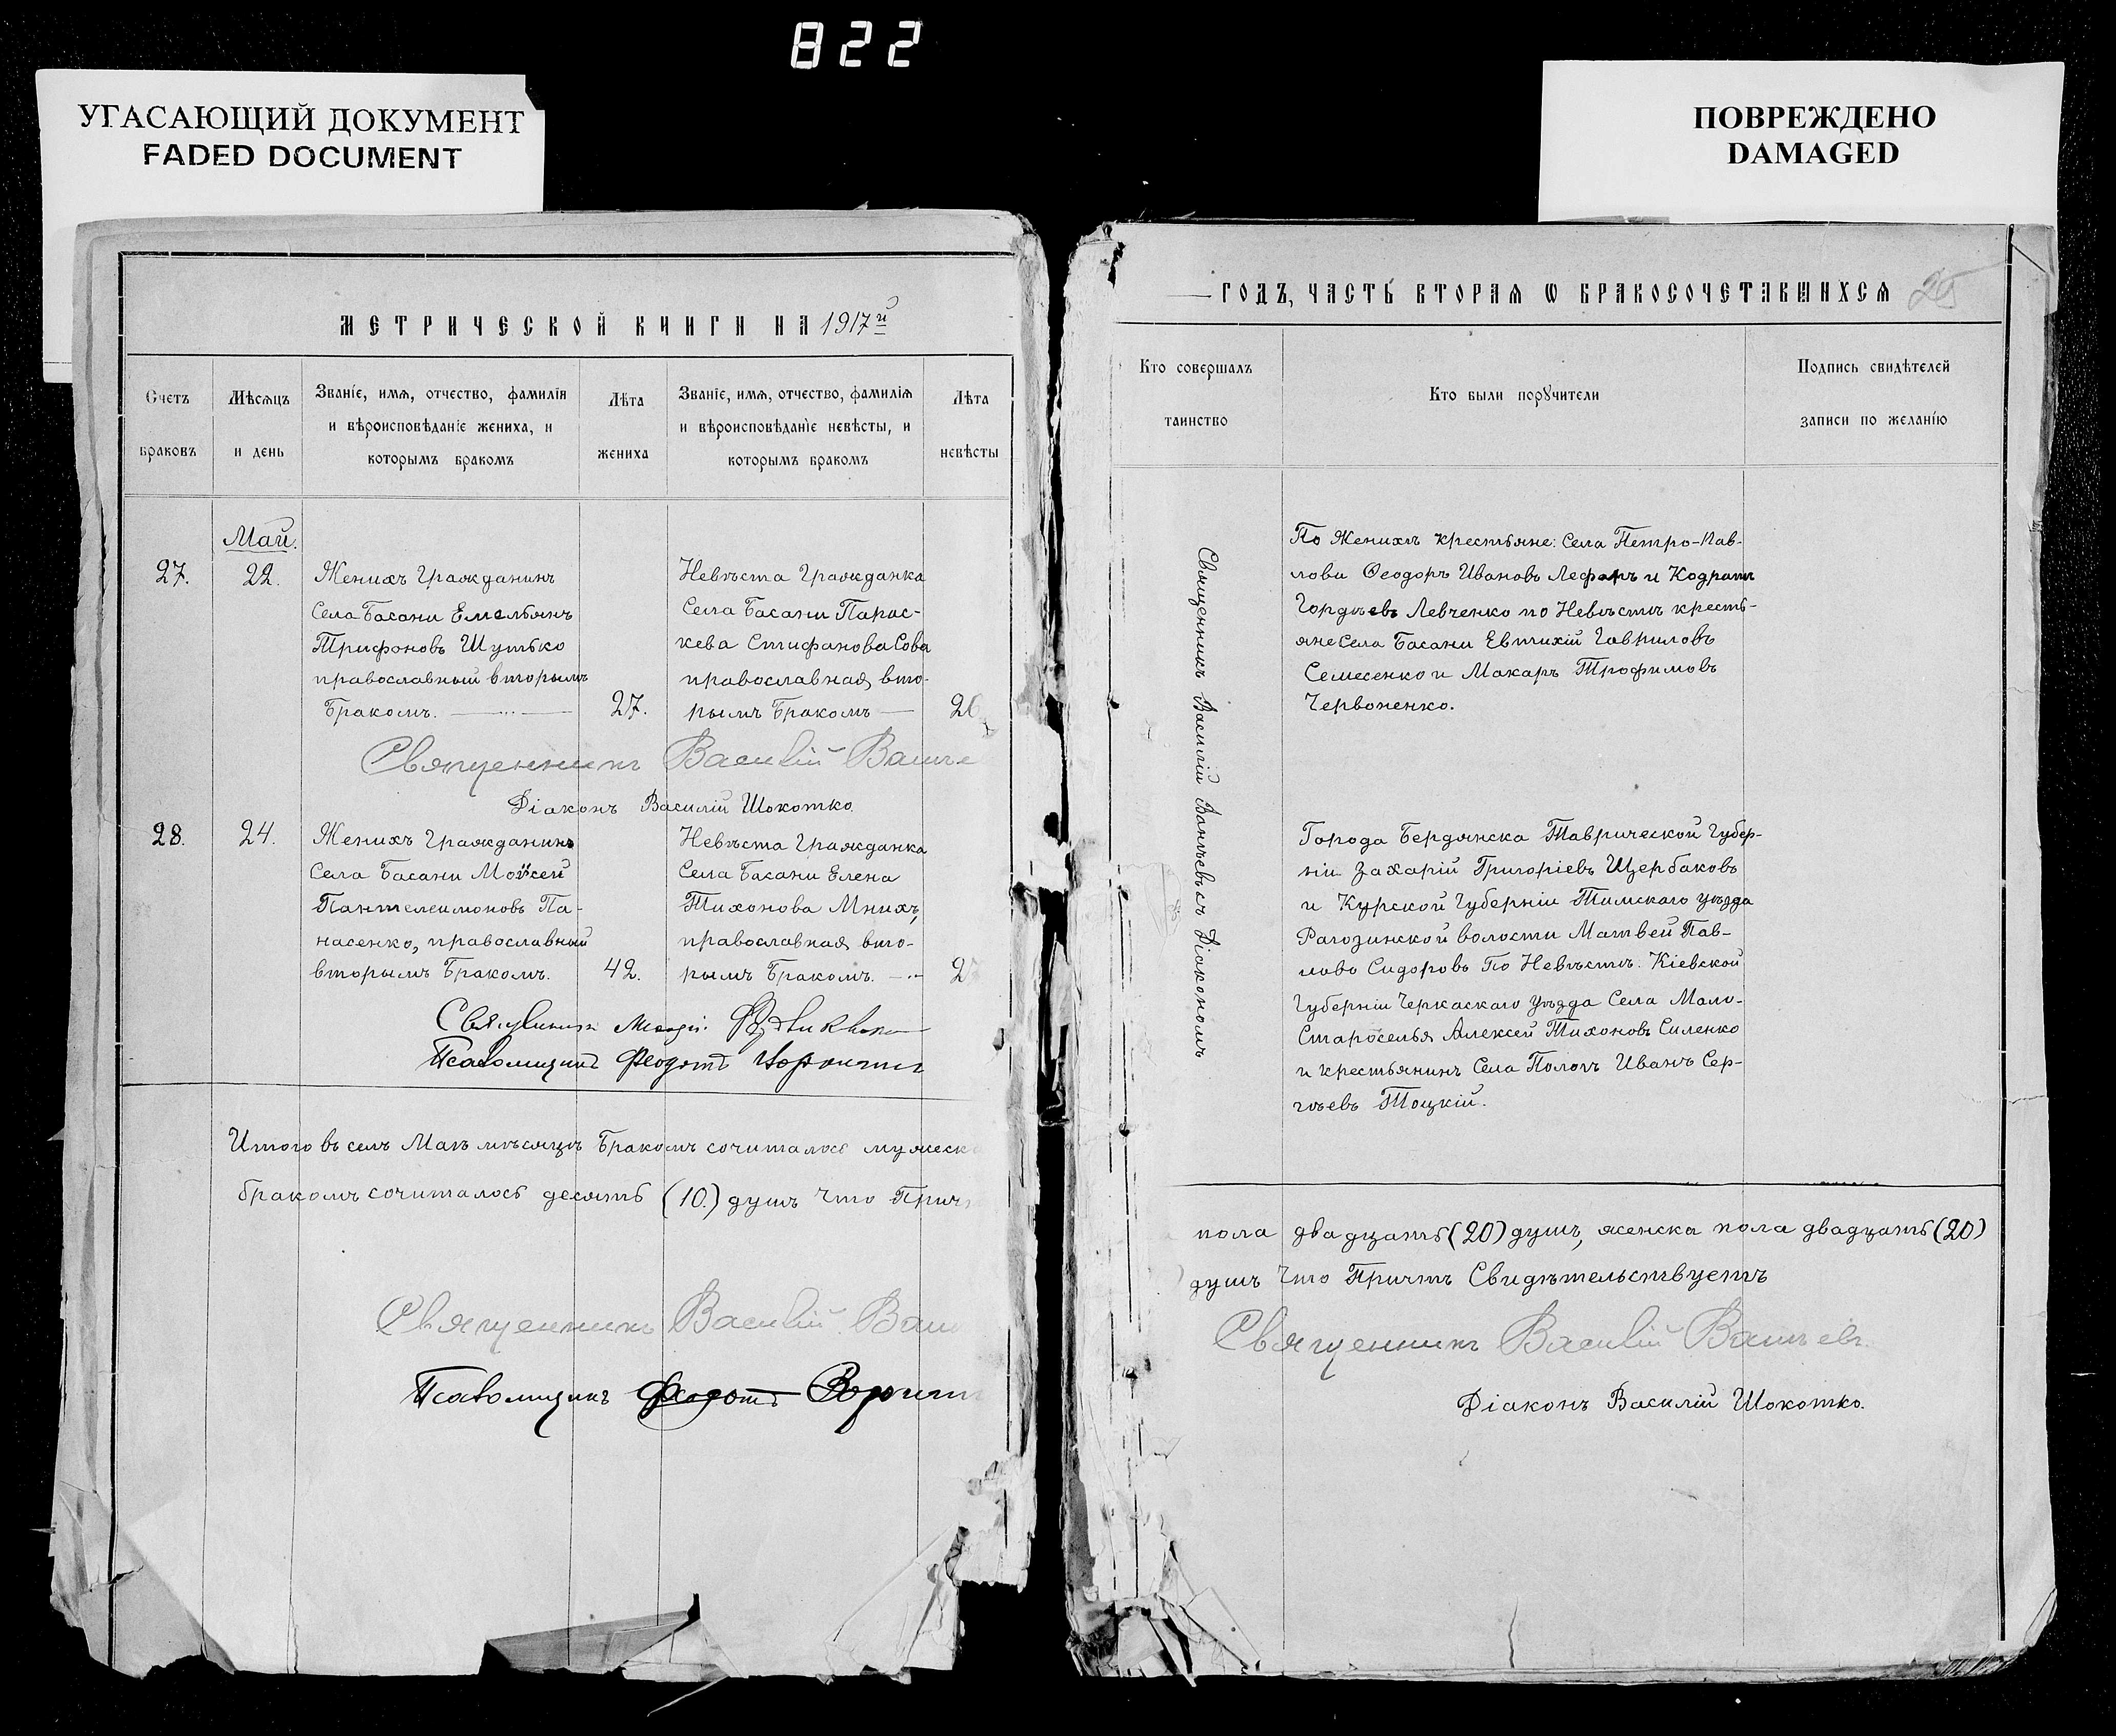 822
УГАСАЮЩИЙ ДОКУМЕНТ
FADED DOCUMENT
ПОВРЕЖДЕНО
DAMAGED
МЕТРИЧЕСКОЙ КНИГИ НА 1917й
Счетъ браковъ
Мѣсяцъ и день
Званіе, имя, отчество, фамилія
и вѣроисповѣданіе жениха, и
которымъ бракомъ
Лѣта
жениха
Званіе, имя, отчество, фамилія
и вѣроисповѣданіе невѣсты, и
которымъ бракомъ
Лѣта
невѣсты
Май.
27.
22.
Женихъ Гражданинъ
Села Басани Емельянъ
Трифоновъ Шутько
православный вторымъ
Бракомъ.
27.
Невѣста Гражданка
Села Басани Парас-
кева Стифанова Сова
православная вто-
рымъ Бракомъ
26
Священникъ Василій
Діаконъ Василій Шокотко
28.
24.
Женихъ Гражданинъ
Села Басани Моѵсей
Пантелеимоновъ Па-
насенко, православный
вторымъ Бракомъ.
42.
Невѣста Гражданка
Села Басани Елена
Тихонова Мнихъ,
православная вто-
рымъ Бракомъ.
2
Священникъ
Псаломщикъ Феодотъ
Итого въ семъ Маѣ мѣсяцѣ Бракомъ сочиталось мужеска
бракомъ сочиталось десять (10.) душъ Что Причт
Священникъ Василій
Псаломщикъ Феодотъ
ГОДЪ, ЧАСТЬ ВТОРАЯ Ѡ БРАКОСОЧЕТАВШИХСЯ
Кто совершалъ
таинство
Кто были поручители
Подпись свидѣтелей
записи по желанію
Священникъ Василій Ваньевъ съ Діакономъ
По Женихѣ крестьяне: Села Петро-Пав-
ловки Ѳеодоръ Ивановъ Лефаръ и Кодратъ
Гордѣевъ Левченко по Невѣстѣ кресть-
яне Села Басани Евтихій Гавриловъ
Семесенко и Макаръ Трофимовъ
Червоненко.
Города Бердянска Таврической Губер-
ніи Захарій Григоріевъ Щербаковъ
и Курской Губерніи Тимскаго уѣзда
Рагозинской волости Матвей Пав-
ловъ Сидоровъ По Невѣстѣ. Кіевской
Губерніи Черкаскаго уѣзда Села Мало-
Староселья Алексей Тихоновъ Силенко
и крестьянинъ Села Пологъ Иванъ Сер-
гѣевъ Тоцкій.
пола двадцать (20) душъ, женска пола двадцать (20)
душъ Что Причтъ Свидѣтельствуетъ
Священникъ Василій
Діаконъ Василій Шокотко.